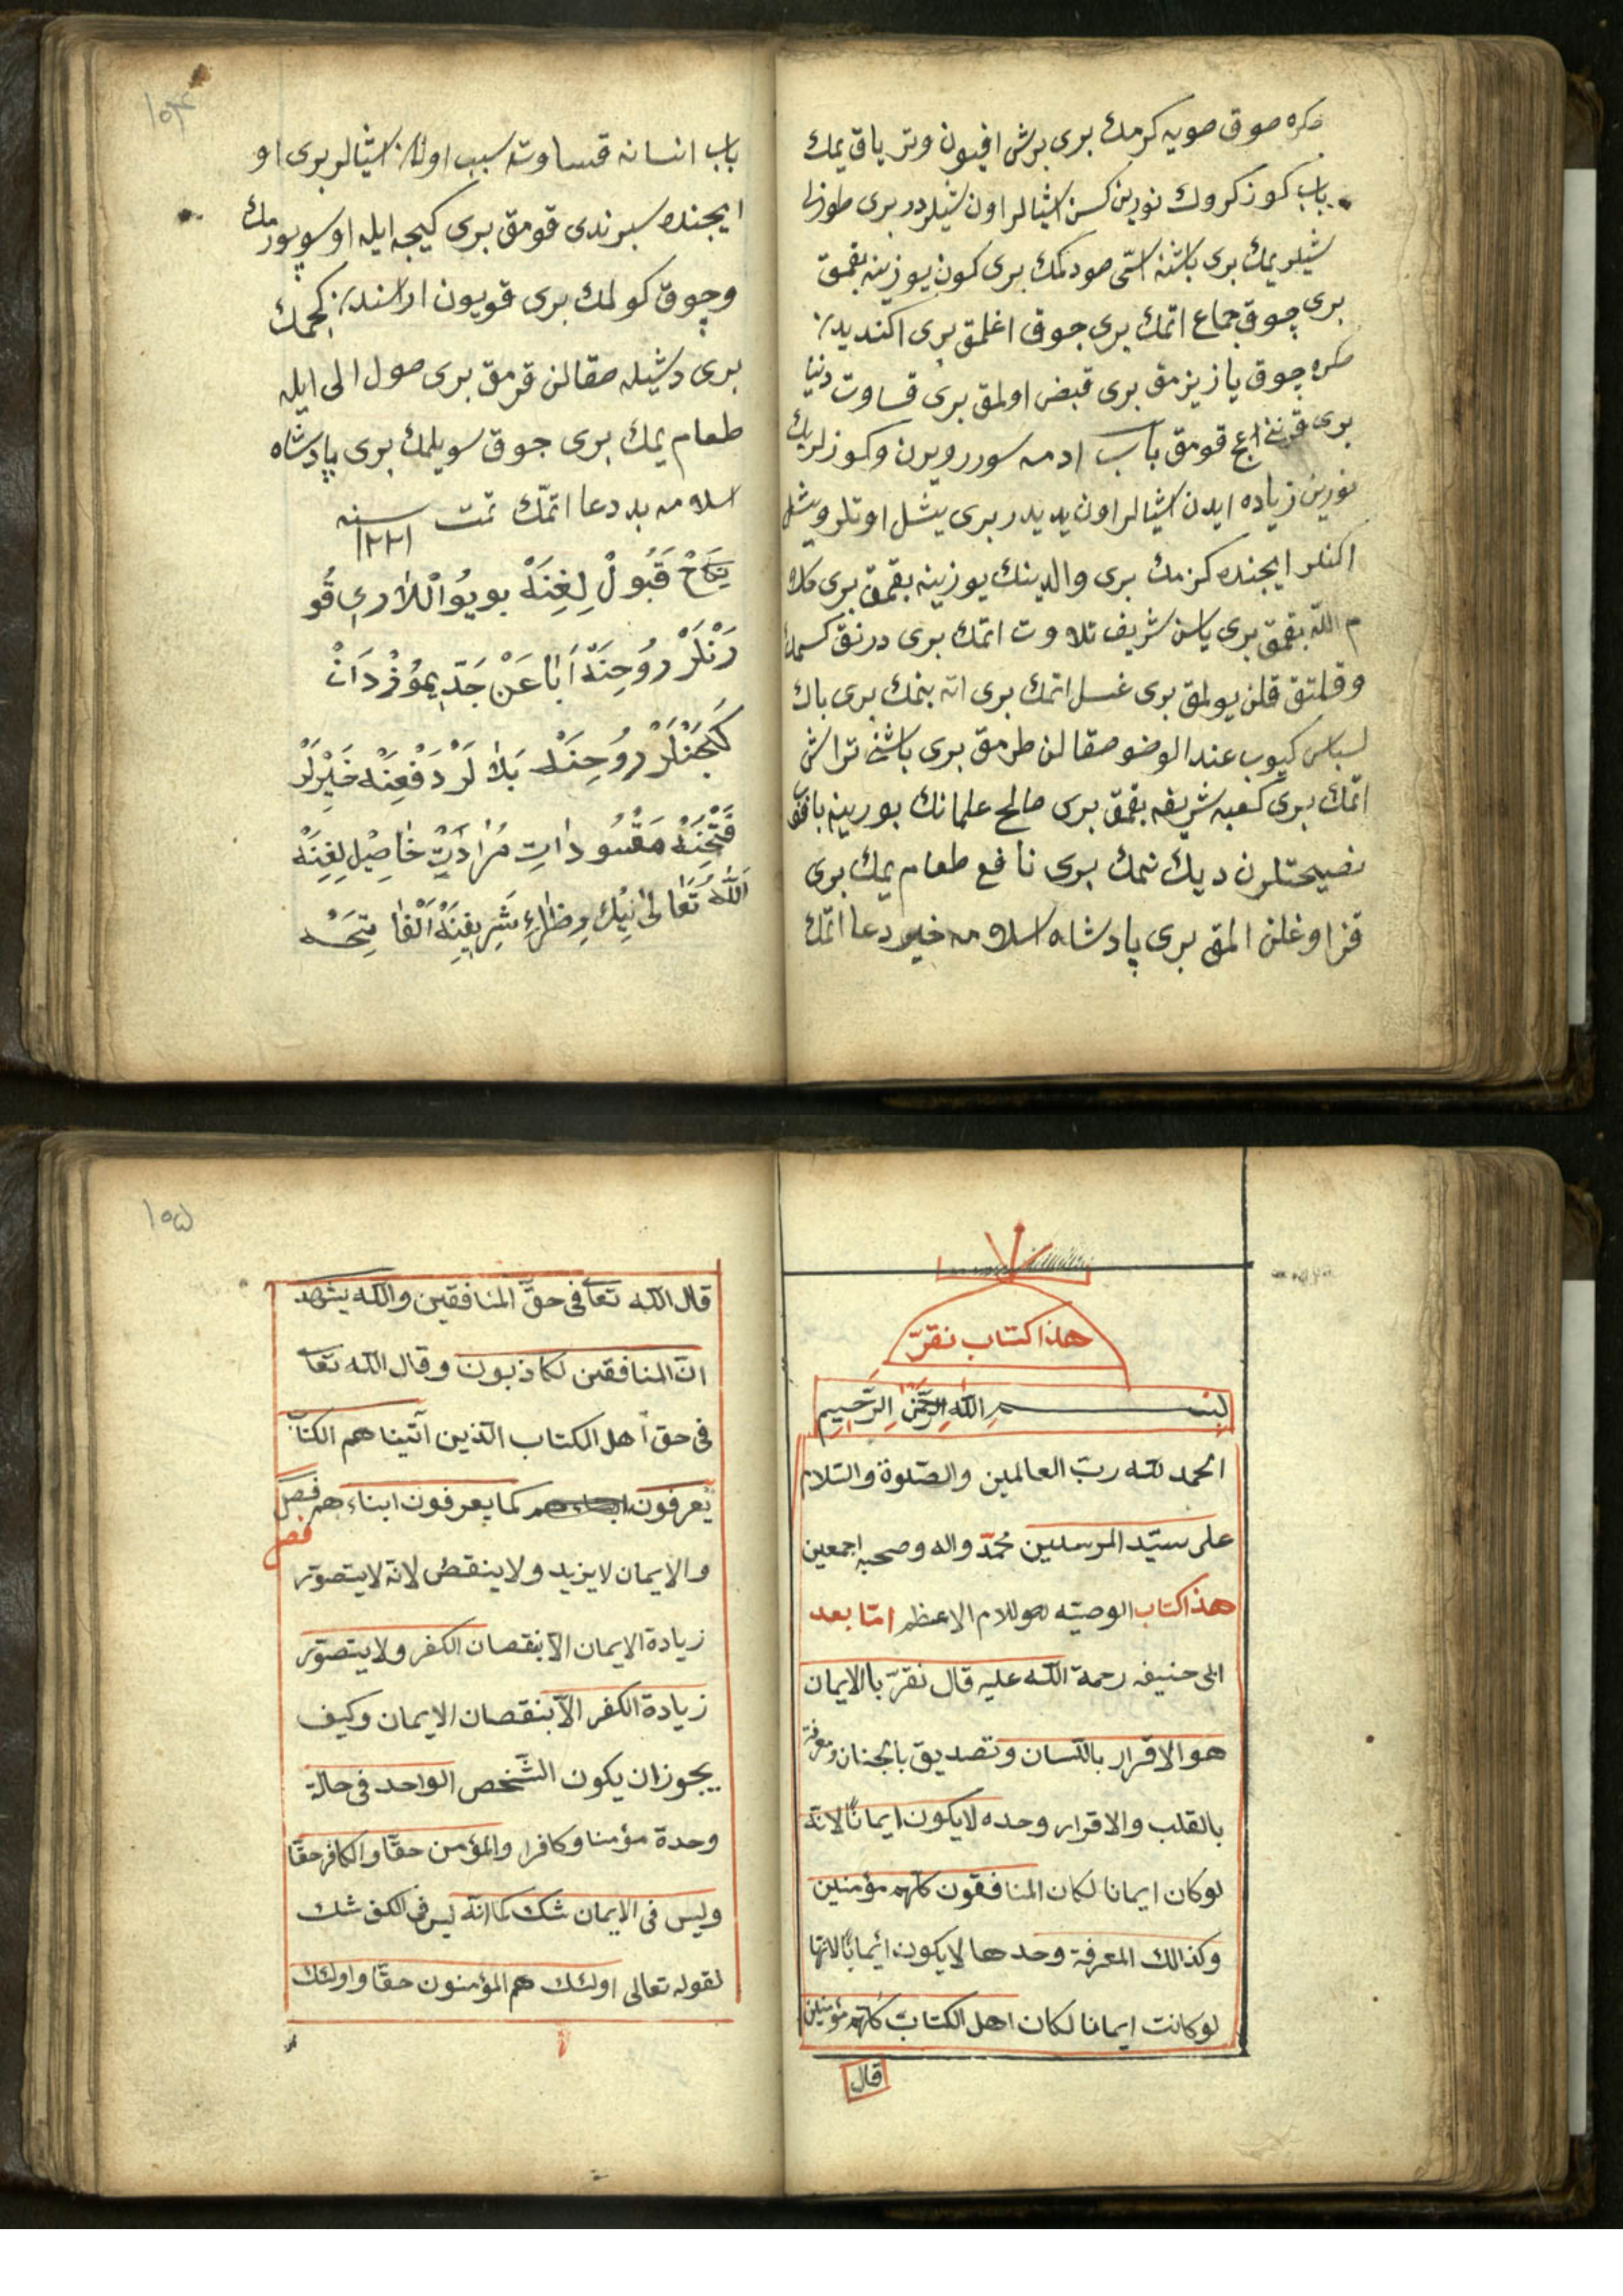 صكره صوق صويه كرمك برى برش افيون وتر ياق يمك
باب كوز كروك نورين كسن اشيالر اون شيلردر برى طوزلى
شيلر يمك برى باشنه اسّى صو دكمك برى كون يوزينه بقمق
برى چوق جماع اتمك برى جوق اغلمق برى اكنديدن
صكره چوق يازيزمق برى قبض اولمق برى قساوت دنيا
برى قرننى اج قومق باب ادمه سورر ويرن وكوزلريك
نورين زياده ايدن اشيالر اون يديدر برى يشل اوتلر ويشل
اكنلر ايچنده كزمك برى والدينك يوزينه بقمق برى كلا
م الله بقمق برى ياسن شريف تلاوت اتمك برى درنق كسمك
وقلتق قلن يولمق برى غسل اتمك برى اته بنمك برى باك
لباس كيوب عند الوضو صقالن طرمق برى باشنى تراش
اتمك برى كعبه شريفه بقمق برى صالح علمانك يورينه باقمق
نصيحتلرن ديك نمك برى نافع طعام يمك برى
قزاوغلن المق برى پادشاه اسلامه خير دعا اتمك
١٥٤
باب انسانه قساوته سبب اولان اشيالر برى او
ايچنده سبرندى قومق برى كيجه ايله او سوپورمك
وچوق كولمك برى قويون اراسندن كچمك
برى دشيله صقالن قرمق برى صول الى ايله
طعام يمك برى جوق سويلمك برى پادشاه
اسلامه بد دعا اتمّك تمت سنه
١٢٢١
نِكَاحْ قَبُولْ لِغِنَهْ بويُو اْللاَرِى قُو
رَنْلَرْ رُوحِنَهْ اَبًا عَنْ جَدّ يمُوزْدَانْ
كَچَنْلَرْ رُوحِنَهْ بَلاَ لَرْ دَفْعِنَهْ خَيْرلَرْ
فَتْحِنَهْ مَقْسُودَاتِ مُرَادَتِ حَاصِيْل لِغِنَهْ
اَللّٰهُ تَعَالىٰ نِيْك رِضَاءِ شَرِيفِنَهْ اَلْفَا تِحَـه
هذا كتاب نقرّ
بسم اللّهِ الرّحمٰنِ الرّحيمِ
الحمد للّه ربّ العالمين والصّلوة والسّلام
على سيّد المرسلين محمّد واله وصحبه اجمعين
هذا كتاب الوصيّه هو للامام الاعظم امّا بعد
ابى حنيفه رحمة اللّه عليه قال نقرّ با الايمان
هو الاقرار باللّسان وتصديق بالجنان ومعرفة
بالقلب والاقرار وحده لا يكون ايمانًا لانّه
لو كان ايمانا لكان المنافقون كلّهم مؤمنين
وكذالك المعرفة وحدها لايكون ائمانًا لانّها
لو كانت ايمانا لكان اهل الكتاب كلّهم مؤمنين
قال
١٥٥
قال اللّه تعا فى حقّ المنافقين واللّه يشهد
انّ المنافقين لكاذبون وقال اللّه تعا
فى حق اهل الكتاب الّذين آتيناهم الكتاب
يعرفون كما يعرفون ابناءهم فصل
فصل
والايمان لا يزيد ولا ينقص لانّه لا يتصوّر
زيادة الايمان الاّ بنقصان الكفر ولا يتصوّر
زيادة الكفر الاّ بنقصان الايمان وكيف
يجوز ان يكون الشّخص الواحد فى حالة
وحدة مؤمنا وكافرا والمؤمن حقّا والكافر حقّا
وليس فى الايمان شك كما انّه ليس فى الكفر شك
لقوله تعالى اولئك هم المؤمنون حقّا واولئك